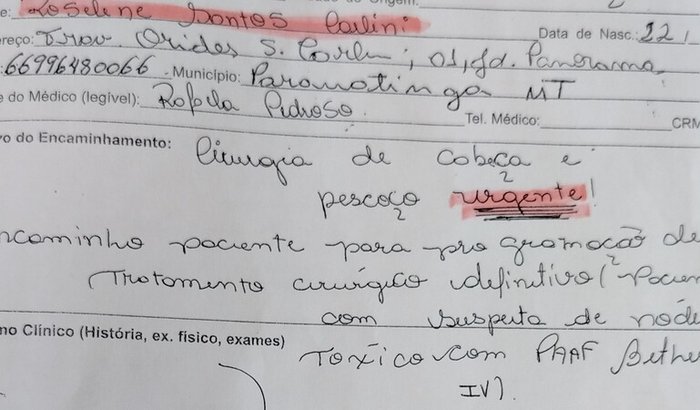 e: Roselene Santos Carlini
ereço: Trav. Orides S. ; 01, Jd. Panorama Data de Nasc.: 22,
: 66996480066 Município: Paranatinga MT
e do Médico (legível): Rafaela Pedroso. Tel. Médico: CRM
vo do Encaminhamento: Cirurgia de cabeça e
pescoço urgente!
ncaminho paciente para programação de
Tratamento cirúrgico definitivo (Pacien
com suspeita de nódu
no Clínico (História, ex. físico, exames)
Tóxico com PAAF Bethe
IV).